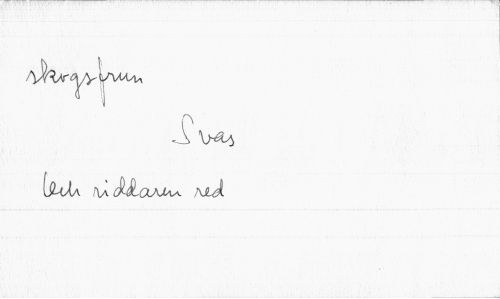 skogsfrun
Svas
Och riddaren red